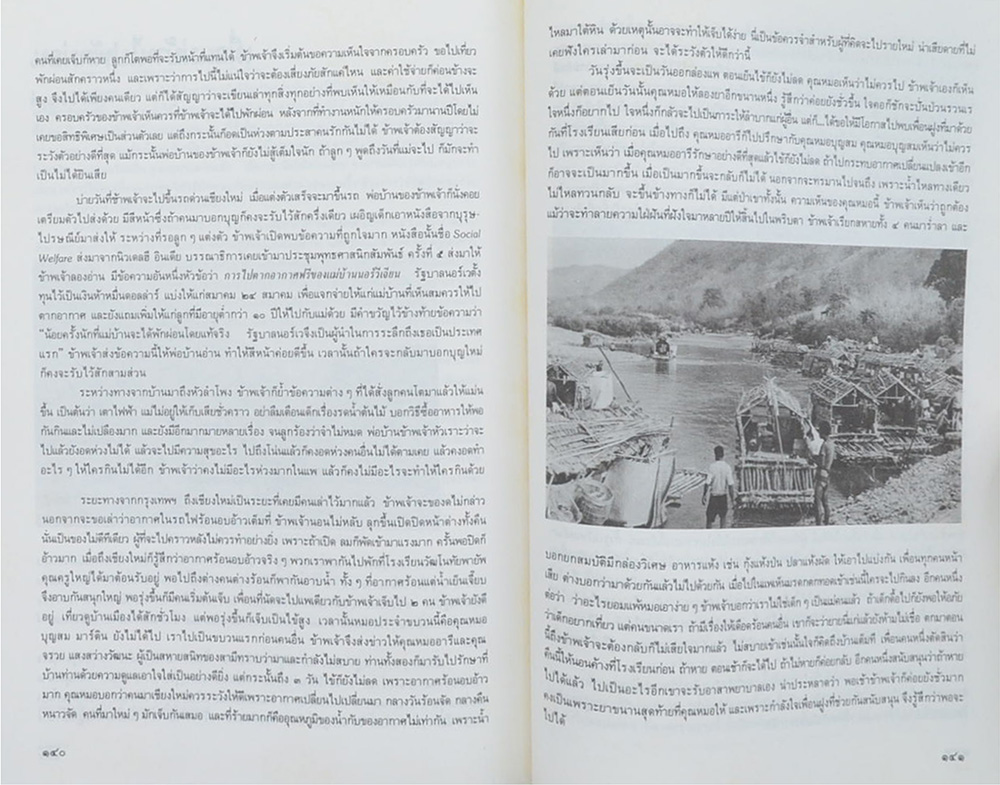 คนที่เคยเจ็บก็หาย ลูกก็โตพอที่จะรับหน้าที่แทนได้ ข้าพเจ้าจึงเริ่มต้นขอความเห็นใจจากครอบครัว ขอไปเที่ยว
พักผ่อนสักคราวหนึ่ง และเพราะว่าการไปนี้ไม่แน่ใจว่าจะต้องเสี่ยงภัยสักแค่ไหน และค่าใช้จ่ายก็ค่อนข้างจะ
สูง จึงไปได้เพียงคนเดียว แต่ก็ได้สัญญาว่าจะเขียนเล่าทุกสิ่งทุกอย่างที่พบเห็นให้เหมือนกับที่จะได้ไปเห็น
เอง ครอบครัวของข้าพเจ้าเห็นควรที่ข้าพเจ้าจะได้ไปพักผ่อน หลังจากที่ทำงานหนักให้ครอบครัวมานานปีโดยไม่
เคยขอสิทธิพิเศษเป็นส่วนตัวเลย แต่ถึงกระนั้นก็อดเป็นห่วงตามประสาคนรักกันไม่ได้ ข้าพเจ้าต้องสัญญาว่าจะ
ระวังตัวอย่างดีที่สุด แม้กระนั้นพ่อบ้านของข้าพเจ้าก็ยังไม่สู้เต็มใจนัก ถ้าลูก ๆ พูดถึงวันที่แม่จะไป ก็มักจะทำ
เป็นไม่ได้ยินเสีย
บ่ายวันที่ข้าพเจ้าจะไปขึ้นรถด่วนเชียงใหม่ เมื่อแต่งตัวเสร็จจะมาขึ้นรถ พ่อบ้านของข้าพเจ้าก็นั่งคอย
เตรียมตัวไปส่งด้วย มีสีหน้าซึ่งถ้าคนมาบอกบุญก็คงจะรับไว้สักครึ่งเดียว เผอิญเด็กเอาหนังสือจากบุรุษ-
ไปรษณีย์มาส่งให้ ระหว่างที่รอลูก ๆ แต่งตัว ข้าพเจ้าเปิดพบข้อความที่ถูกใจมาก หนังสือนั้นชื่อ Social
Welfare ส่งมาจากนิวเดลฮี อินเดีย บรรณาธิการเคยเข้ามาประชุมพุทธศาสนิกสัมพันธ์ ครั้งที่ ๕ ส่งมาให้
ข้าพเจ้าลองอ่าน มีข้อความอันหนึ่งหัวข้อว่า การไปตากอากาศฟรีของแม่บ้านนอร์วีเจียน รัฐบาลนอร์เวตั้ง
ทุนไว้เป็นเงินห้าหมื่นดอลล่าร์ แบ่งให้แก่สมาคม ๒๔ สมาคม เพื่อแจกจ่ายให้แก่แม่บ้านที่เห็นสมควรให้ไป
ตากอากาศ และยังแถมเพิ่มให้แก่ลูกที่มีอายุต่ำกว่า ๑๐ ปีให้ไปกับแม่ด้วย มีคำขวัญไว้ข้างท้ายข้อความว่า
“น้อยครั้งนักที่แม่บ้านจะได้พักผ่อนโดยแท้จริง รัฐบาลนอร์เวจึงเป็นผู้นำในการระลึกถึงเธอเป็นประเทศ
แรก” ข้าพเจ้าส่งข้อความนี้ให้พ่อบ้านอ่าน ทำให้สีหน้าค่อยดีขึ้น เวลานั้นถ้าใครจะกลับมาบอกบุญใหม่
ก็คงจะรับไว้สักสามส่วน
ระหว่างทางจากบ้านมาถึงหัวลำโพง ข้าพเจ้าก็ย้ำข้อความต่าง ๆ ที่ได้สั่งลูกคนโตมาแล้วให้แม่น
ขึ้น เป็นต้นว่า เตาไฟฟ้า แม่ไม่อยู่ให้เก็บเสียชั่วคราว อย่าลืมเตือนเด็กเรื่องรดน้ำต้นไม้ บอกวิธีซื้ออาหารให้พอ
กันกินและไม่เปลืองมาก และยังมีอีกมากมายหลายเรื่อง จนลูกร้องว่าจำไม่หมด พ่อบ้านข้าพเจ้าหัวเราะว่าจะ
ไปแล้วยังอดห่วงไม่ได้ แล้วจะไปมีความสุขอะไร ไปถึงโน่นแล้วก็คงอดห่วงคนอื่นไม่ได้ตามเคย แล้วคงอดทำ
อะไร ๆ ให้ใครกินไม่ได้อีก ข้าพเจ้าว่าคงไม่มีอะไรห่วงมากในแพ แล้วก็คงไม่มีอะไรจะทำให้ใครกินด้วย
ระยะทางจากกรุงเทพฯ ถึงเชียงใหม่เป็นระยะที่เคยมีคนเล่าไว้มากแล้ว ข้าพเจ้าจะของดไม่กล่าว
นอกจากจะขอเล่าว่าอากาศในรถไฟร้อนอบอ้าวเต็มที่ ข้าพเจ้านอนไม่หลับ ลุกขึ้นเปิดปิดหน้าต่างทั้งคืน
นับเป็นของไม่ดีทีเดียว ผู้ที่จะไปคราวหลังไม่ควรทำอย่างยิ่ง เพราะถ้าเปิด ลมก็พัดเข้ามาแรงมาก ครั้นพอปิดก็
อ้าวมาก เมื่อถึงเชียงใหม่ก็รู้สึกว่าอากาศร้อนอบอ้าวจริง ๆ พวกเราพากันไปพักที่โรงเรียนวัฒโนทัยพายัพ
คุณครูใหญ่ได้มาต้อนรับอยู่ พอไปถึงต่างคนต่างร้อนก็พากันอาบน้ำ ทั้ง ๆ ที่อากาศร้อนแต่น้ำเย็นเจี๊ยบ
จึงอาบกันสนุกใหญ่ พอรุ่งขึ้นก็มีคนเริ่มเจ็บ เพื่อนที่นัดจะไปแพเดียวกับข้าพเจ้าเจ็บไป ๒ คน ข้าพเจ้ายังดี
อยู่ เที่ยวดูบ้านเมืองได้สักชั่วโมง แต่พอรุ่งขึ้นก็เจ็บเป็นไข้สูง เวลานั้นหมอประจำขบวนนี้คือคุณหมอ
บุญสม มาร์ติน ยังไม่ได้ไป เราไปเป็นขบวนแรกก่อนคนอื่น ข้าพเจ้าจึงส่งข่าวให้คุณหมออารีและคุณ
จรวย แสงสว่างวัฒนะ ผู้เป็นสหายสนิทของสามีทราบว่ามาและกำลังไม่สบาย ท่านทั้งสองก็มารับไปรักษาที่
บ้านท่านด้วยความดูแลเอาใจใส่เป็นอย่างดียิ่ง แต่กระนั้นถึง ๓ วัน ไข้ก็ยังไม่ลด เพราะอากาศร้อนอบอ้าว
มาก คุณหมอบอกว่าคนมาเชียงใหม่ควรระวังให้ดีเพราะอากาศเปลี่ยนไปเปลี่ยนมา กลางวันร้อนจัด กลางคืน
หนาวจัด คนที่มาใหม่ ๆ มักเจ็บกันเสมอ และที่ร้ายมากก็คืออุณหภูมิของน้ำกับของอากาศไม่เท่ากัน เพราะน้ำ
๑๔๐
ไหลมาใต้หิน ด้วยเหตุนั้นอาจจะทำให้จับไข้ได้ง่าย นี่เป็นข้อควรจำสำหรับผู้ที่คิดจะไปรายใหม่ น่าเสียดายที่ไม่
เคยฟังใครเล่ามาก่อน จะได้ระวังตัวให้ดีกว่านี้
วันรุ่งขึ้นจะเป็นวันออกล่องแพ ตอนเย็นไข้ก็ยังไม่ลด คุณหมอเห็นว่าไม่ควรไป ข้าพเจ้าเองก็เห็น
ด้วย แต่ตอนเย็นวันนั้นคุณหมอให้ลองยาอีกขนานหนึ่ง รู้สึกว่าค่อยยังชั่วขึ้น ใจคอก็ชักจะปั่นป่วนรวนเร
ใจหนึ่งก็อยากไป ใจหนึ่งก็กลัวจะไปเป็นภาระให้ลำบากแก่ผู้อื่น แต่ก็...ได้ขอให้มีโอกาสไปพบเพื่อนฝูงที่มาด้วย
กันที่โรงเรียนเสียก่อน เมื่อไปถึง คุณหมออารีก็ไปปรึกษากับคุณหมอบุญสม คุณหมอบุญสมเห็นว่าไม่ควร
ไป เพราะเห็นว่า เมื่อคุณหมออารีรักษาอย่างดีที่สุดแล้วไข้ก็ยังไม่ลด ถ้าไปกระทบอากาศเปลี่ยนแปลงเข้าอีก
ก็อาจจะเป็นมากขึ้น เมื่อเป็นมากขึ้นจะกลับก็ไม่ได้ นอกจากจะทรมานไปจนถึง เพราะน้ำไหลทางเดียว
ไม่ไหลทวนกลับ จะขึ้นข้างทางก็ไม่ได้ มีแต่ป่าเขาทั้งนั้น ความเห็นของคุณหมอนี้ ข้าพเจ้าเห็นว่าถูกต้อง
แม้ว่าจะทำลายความใฝ่ฝันที่ฝังใจมาหลายปีให้สิ้นไปในพริบตา ข้าพเจ้าเรียกสหายทั้ง ๔ คนมาร่ำลา และ
บอกยกสมบัติมีกล่องวิเศษ อาหารแห้ง เช่น กุ้งแห้งป่น ปลาแห้งผัด ให้เอาไปแบ่งกัน เพื่อนทุกคนหน้า
เสีย ต่างบอกว่ามาด้วยกันแล้วไม่ไปด้วยกัน เมื่อไปในแพเห็นมรดกตกทอดเข้าเช่นนี้ใครจะไปกินลง อีกคนหนึ่ง
ต่อว่า ว่าอะไรยอมแพ้หมอเอาง่าย ๆ ข้าพเจ้าบอกว่าเราไม่ใช่เด็ก ๆ เป็นแม่คนแล้ว ถ้าเด็กดื้อไปก็ยังพอให้อภัย
ว่าเด็กอยากเที่ยว แต่คนขนาดเรา ถ้ามีเรื่องให้เดือดร้อนคนอื่น เขาก็จะว่ายายนี่แก่แล้วยังห้ามไม่เชื่อ ตกมาตอน
นี้ถึงข้าพเจ้าจะต้องกลับก็ไม่เสียใจมากแล้ว ไม่สบายเข้าเช่นนั้นใจก็คิดถึงบ้านเต็มที เพื่อนคนหนึ่งตัดสินว่า
คืนนี้ให้นอนค้างที่โรงเรียนก่อน ถ้าหาย ตอนเช้าก็จะได้ไป ถ้าไม่หายก็ค่อยกลับ อีกคนหนึ่งสนับสนุนว่าถ้าหาย
ไปได้แล้ว ไปเป็นอะไรอีกเขาจะรับอาสาพยาบาลเอง น่าประหลาดว่า พอเช้าข้าพเจ้าก็ค่อยยังชั่วมาก
คงเป็นเพราะยาขนานสุดท้ายที่คุณหมอให้ และเพราะกำลังใจเพื่อนฝูงที่ช่วยกันสนับสนุน จึงรู้สึกว่าพอจะ
ไปได้
๑๔๑